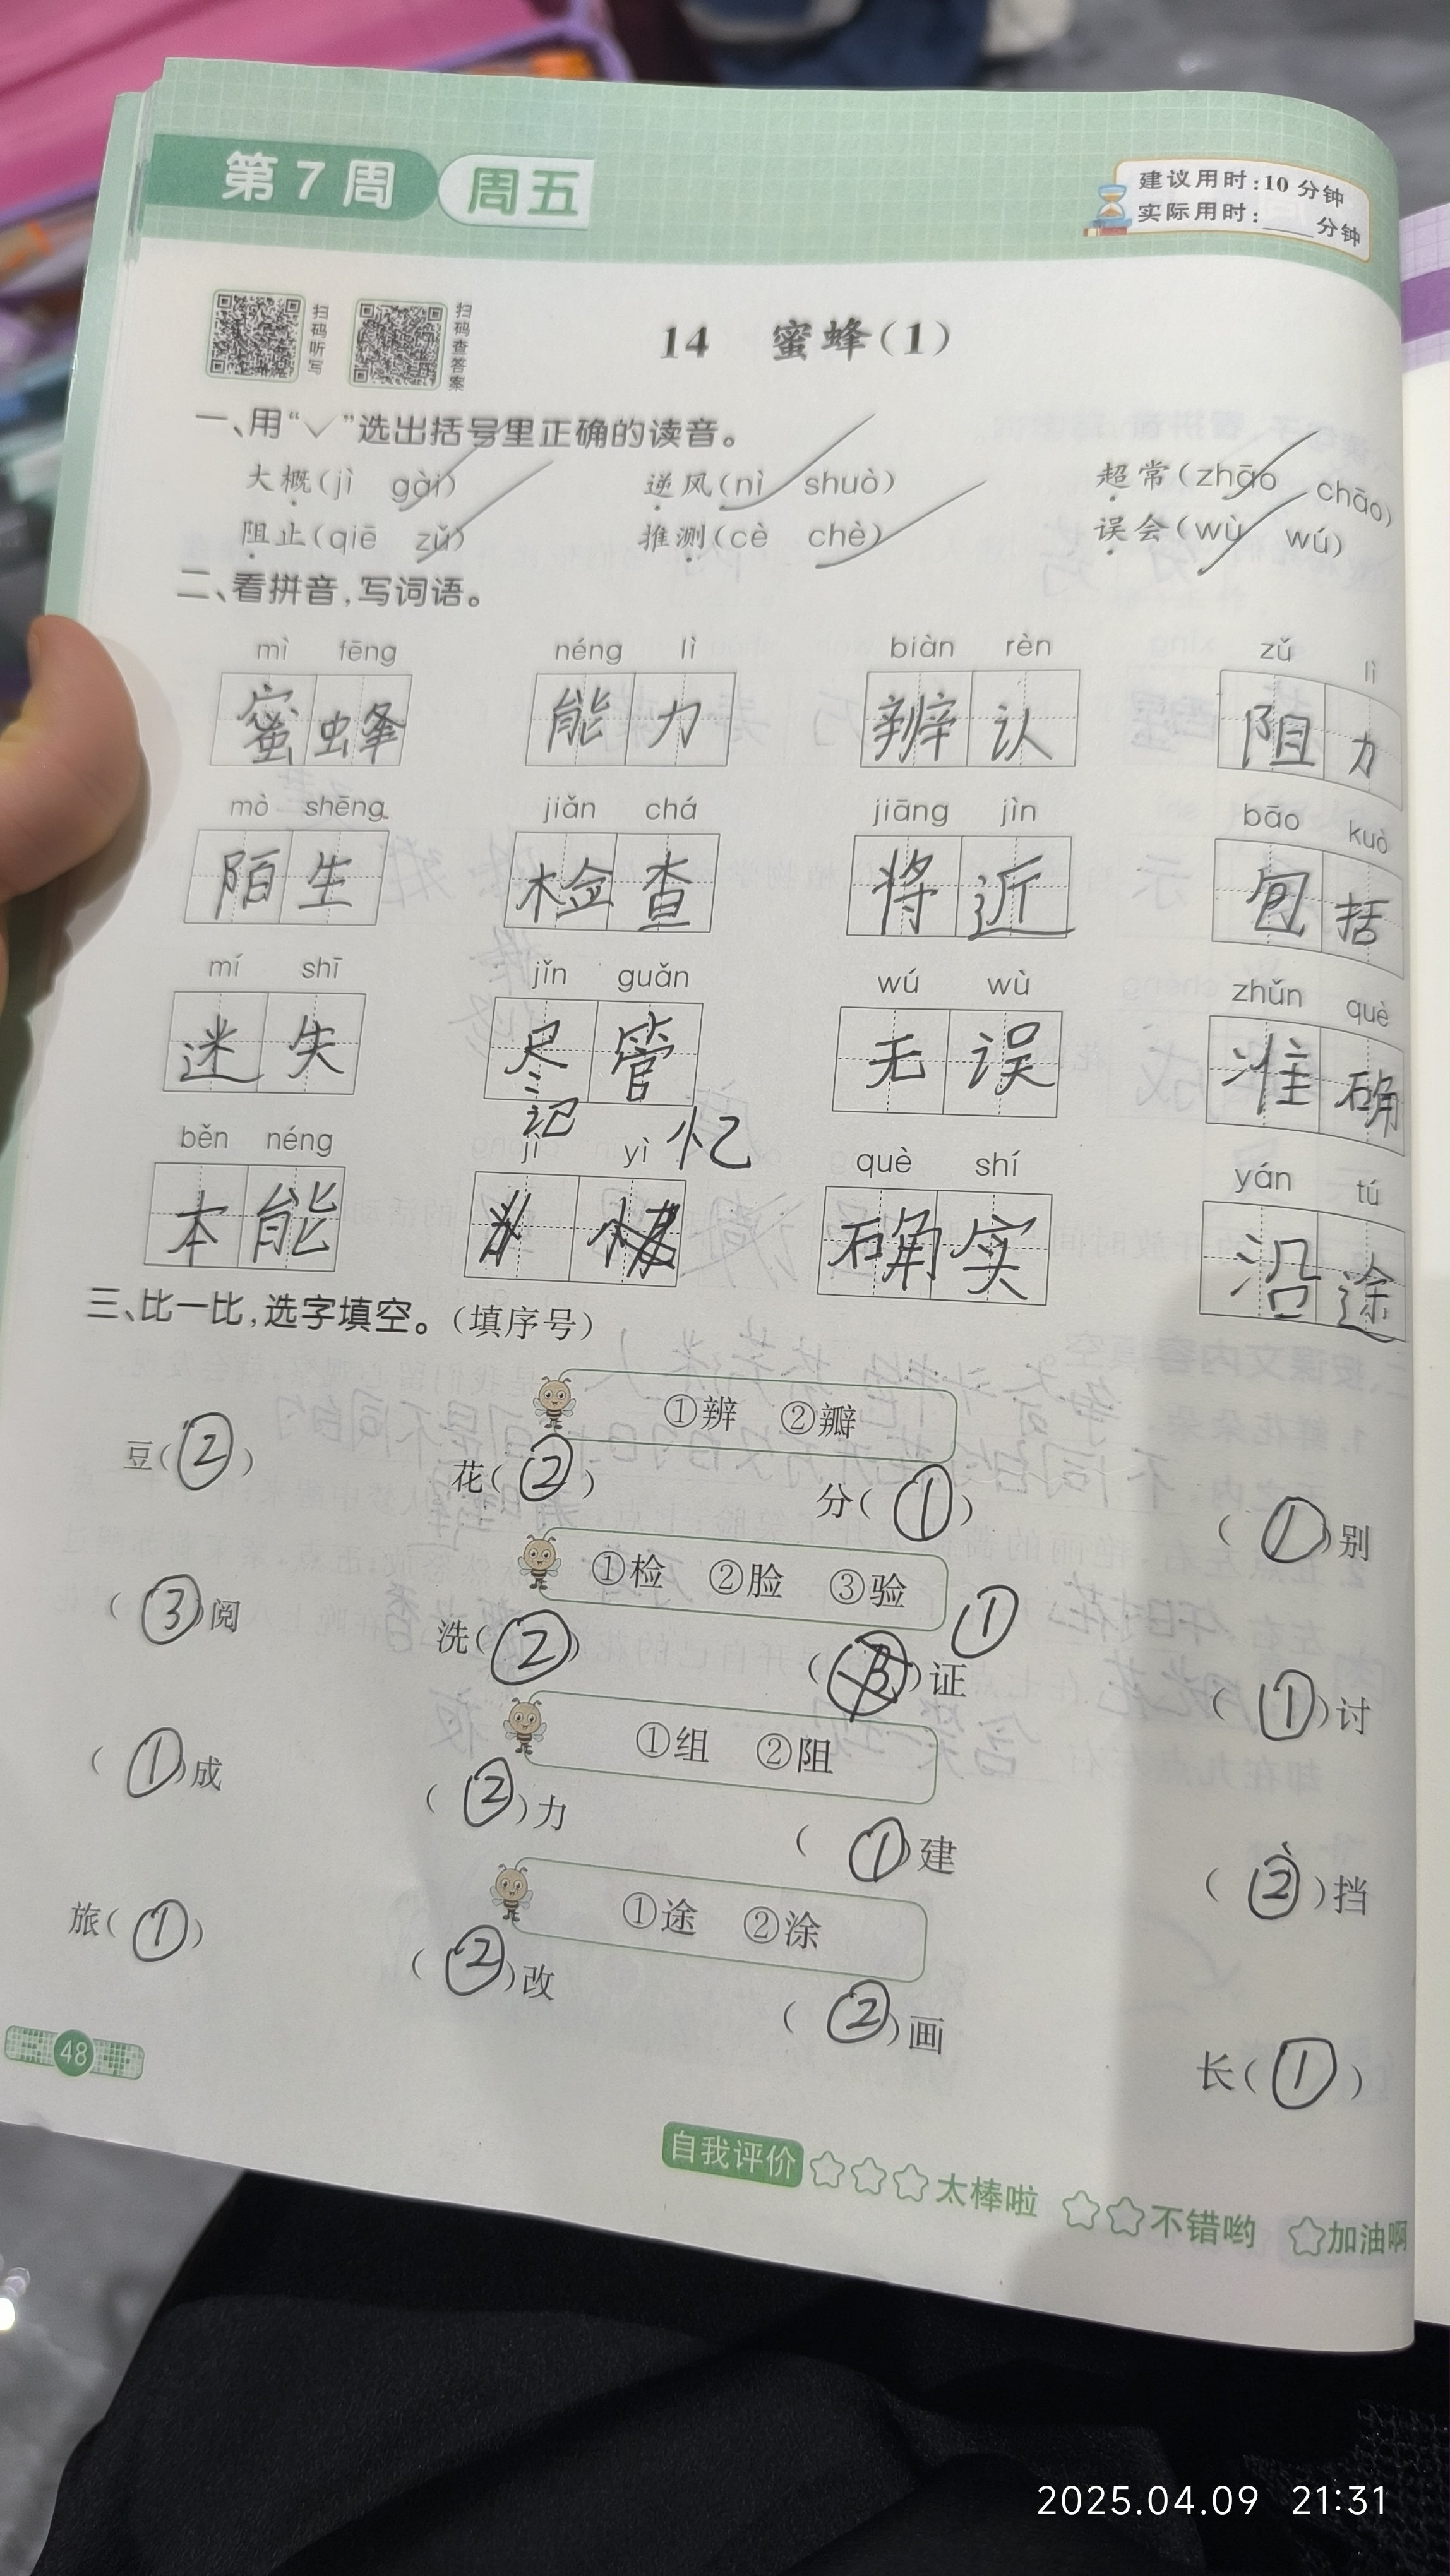 第7周 周五
建议用时:10分钟
实际用时:____分钟
扫码听写
扫码查答案
14 蜜蜂(1)
一、用“✓”选出括号里正确的读音。
大概(jì gài) 逆风(nì shuò) 超常(zhāo chāo)
阻止(qiē zǔ) 推测(cè chè) 误会(wù wú)
二、看拼音,写词语。
mì fēng néng lì biàn rèn zǔ lì
蜜蜂 能力 辨认 阻力
mò shēng jiǎn chá jiāng jìn bāo kuò
陌生 检查 将近 包括
mí shī jǐn guǎn wú wù zhǔn què
迷失 尽管 无误 准确
记 忆
běn néng jì yì què shí yán tú
本能 确实 沿途
三、比一比,选字填空。(填序号)
①辨 ②瓣
豆(②) 花(②) 分(①) (①)别
①检 ②脸 ③验
(③)阅 洗(②) (③)证 ① (①)讨
①组 ②阻
(①)成 (②)力 (①)建 (②)挡
①途 ②涂
旅(①) (②)改 (②)画 长(①)
48
自我评价 ☆☆☆太棒啦 ☆☆不错哟 ☆加油啊
2025.04.09 21:31